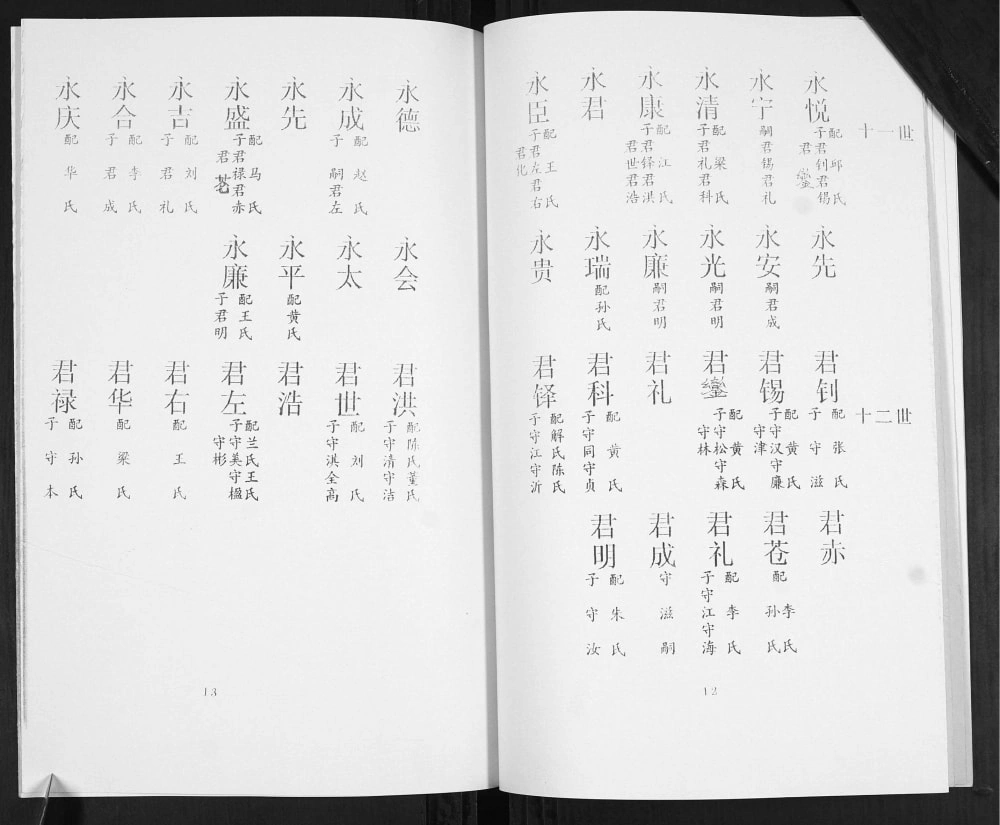 十一世
永悦
配邱氏
子君钊君锡
君鑾
永宁
嗣君锡君礼
永清
配梁氏
子君礼君科
永康
配江氏
子君铎君洪
君世君浩
永君
永臣
配王氏
子君左君右
君化
永先
永安
嗣君成
永光
嗣君明
永廉
嗣君明
永瑞
配孙氏
永贵
十二世
君钊
配张氏
子守滋
君锡
配黄氏
子守汉守廉
守津
君鑾
配黄氏
子守松守森
守林
君礼
君科
配黄氏
子守同守贞
君铎
配解氏陈氏
子守江守沂
君赤
君苍
配李氏
孙氏
君礼
配李氏
子守江守海
君成
守滋嗣
君明
配朱氏
子守汝
12
永德
永成
配赵氏
子嗣君左
永先
永盛
配马氏
子君禄君赤
君苍
永吉
配刘氏
子君礼
永合
配李氏
子君成
永庆
配华氏
永会
永太
永平
配黄氏
永廉
配王氏
子君明
君洪
配陈氏董氏
子守清守洁
君世
配刘氏
子守淇全高
君浩
君左
配兰氏王氏
子守美守楹
守彬
君右
配王氏
君华
配梁氏
君禄
配孙氏
子守本
13